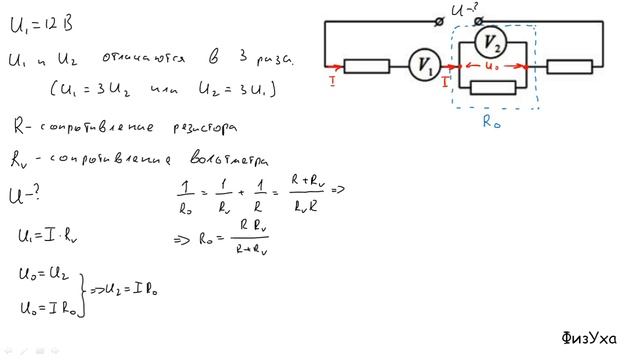 U₁ = 12 В
U₁ и U₂ отличаются в 3 раза.
(U₁ = 3U₂ или U₂ = 3U₁)
R - сопротивление резистора
Rv - сопротивление вольтметра
U - ?
U₁ = I · Rv
U₀ = U₂
U₀ = I R₀
=> U₂ = I R₀
1/R₀ = 1/Rv + 1/R = (R + Rv)/(Rv R) =>
=> R₀ = (R Rv)/(R + Rv)
U - ?
V₂
I
V₁
I
U₀
R₀
ФизУха